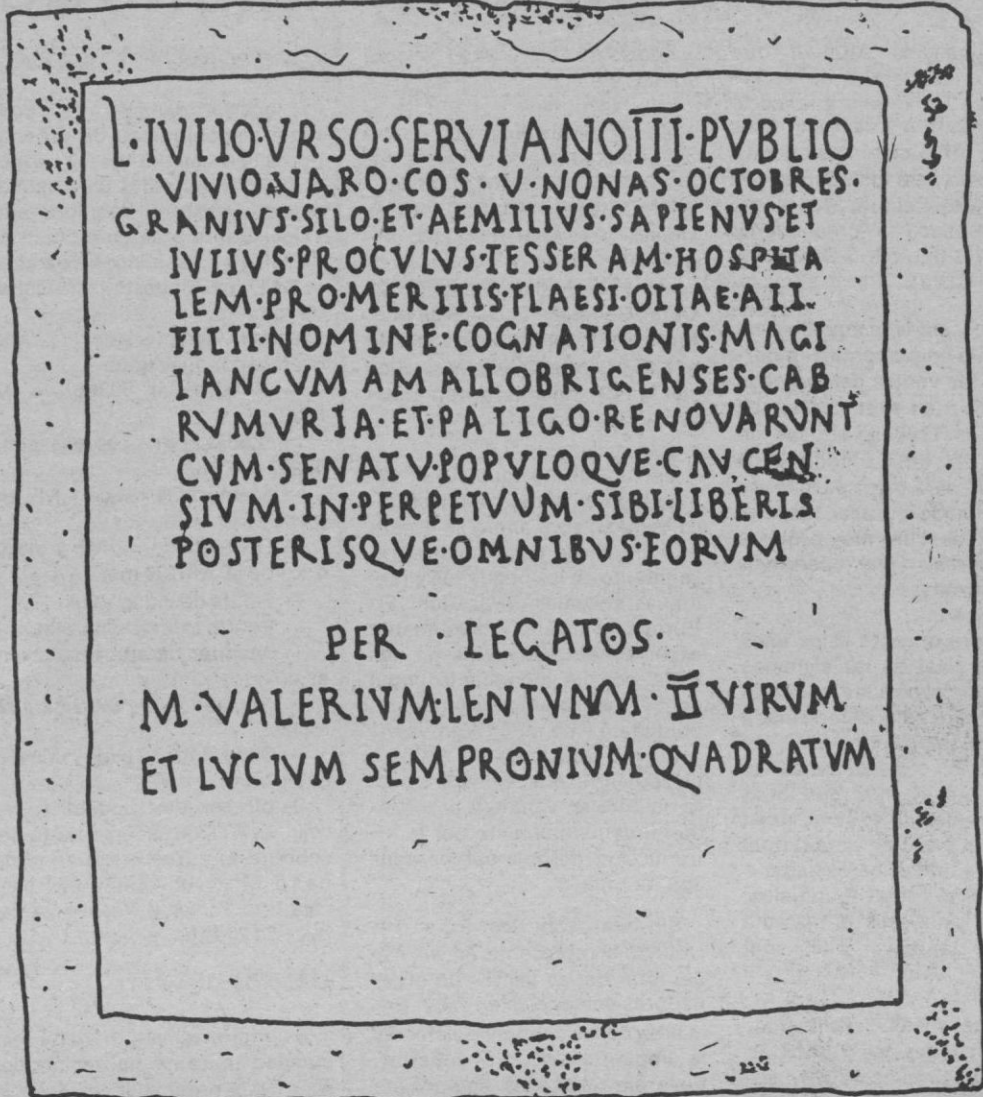 L·IVLIO·VRSO·SERVIANO I̅I̅I̅·PVBLIO
VIVIO·VARO·COS·V·NONAS·OCTOBRES·
GRANIVS·SILO·ET·AEMILIVS·SAPIENVS·ET
IVLIVS·PROCVLVS·TESSERAM·HOSPITA
LEM·PRO·MERITIS·FLAESI·OITAE·AII
FILII·NOMINE·COGNATIONIS·MAGI
LANCVM AMALLOBRIGENSES·CAB
RVMVRIA·ET·PALIGO·RENOVARVNT
CVM·SENATV·POPVLOQVE·CAVCEN
SIVM·IN·PERPETVVM·SIBI·LIBERIS
POSTERISQVE·OMNIBVS·EORVM
PER·LEGATOS·
M·VALERIVM·LENTVNM·I̅I̅ VIRVM
ET LVCIVM SEMPRONIVM·QVADRATVM